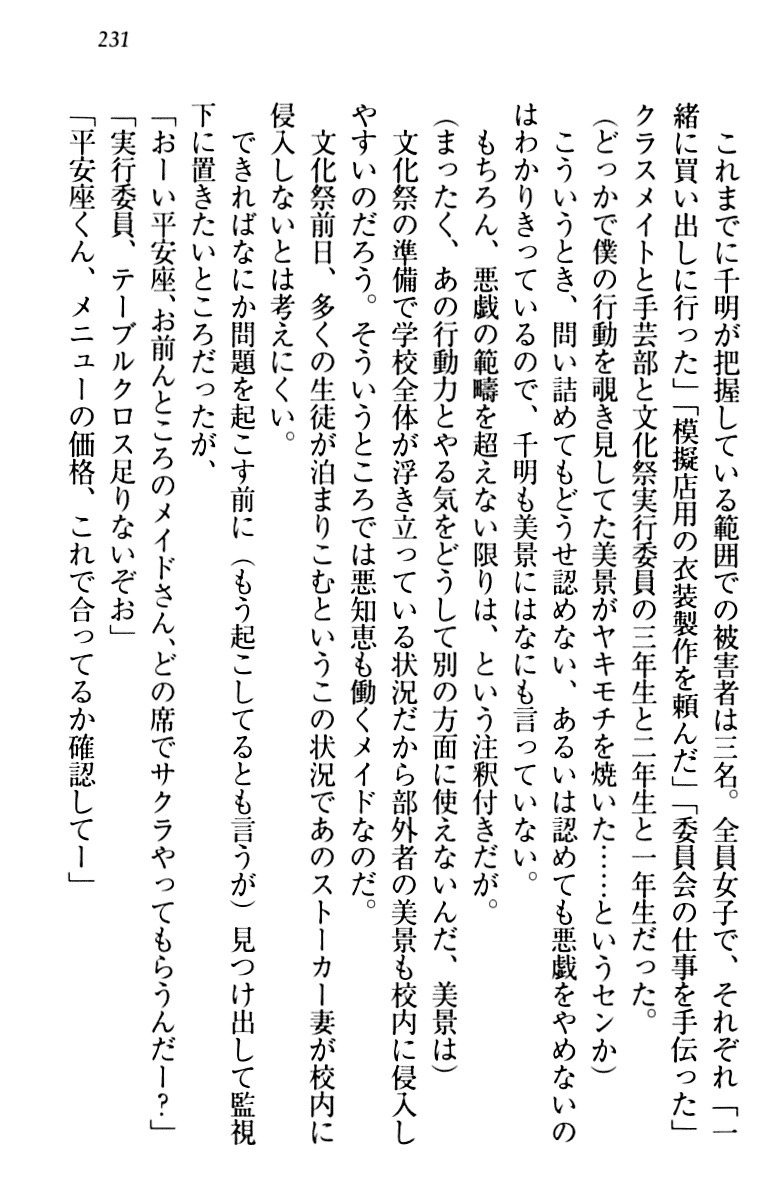 231
　これまでに千明が把握している範囲での被害者は三名。全員女子で、それぞれ「一
緒に買い出しに行った」「模擬店用の衣装製作を頼んだ」「委員会の仕事を手伝った」
クラスメイトと手芸部と文化祭実行委員の三年生と二年生と一年生だった。
（どっかで僕の行動を覗き見してた美景がヤキモチを焼いた……というセンか）
　こういうとき、問い詰めてもどうせ認めない、あるいは認めても悪戯をやめないの
はわかりきっているので、千明も美景にはなにも言っていない。
　もちろん、悪戯の範疇を超えない限りは、という注釈付きだが。
（まったく、あの行動力とやる気をどうして別の方面に使えないんだ、美景は）
　文化祭の準備で学校全体が浮き立っている状況だから部外者の美景も校内に侵入し
やすいのだろう。そういうところでは悪知恵も働くメイドなのだ。
　文化祭前日、多くの生徒が泊まりこむというこの状況であのストーカー妻が校内に
侵入しないとは考えにくい。
　できればなにか問題を起こす前に（もう起こしてるとも言うが）見つけ出して監視
下に置きたいところだったが、
「おーい平安座、お前んところのメイドさん、どの席でサクラやってもらうんだー？」
「実行委員、テーブルクロス足りないぞお」
「平安座くん、メニューの価格、これで合ってるか確認してー」